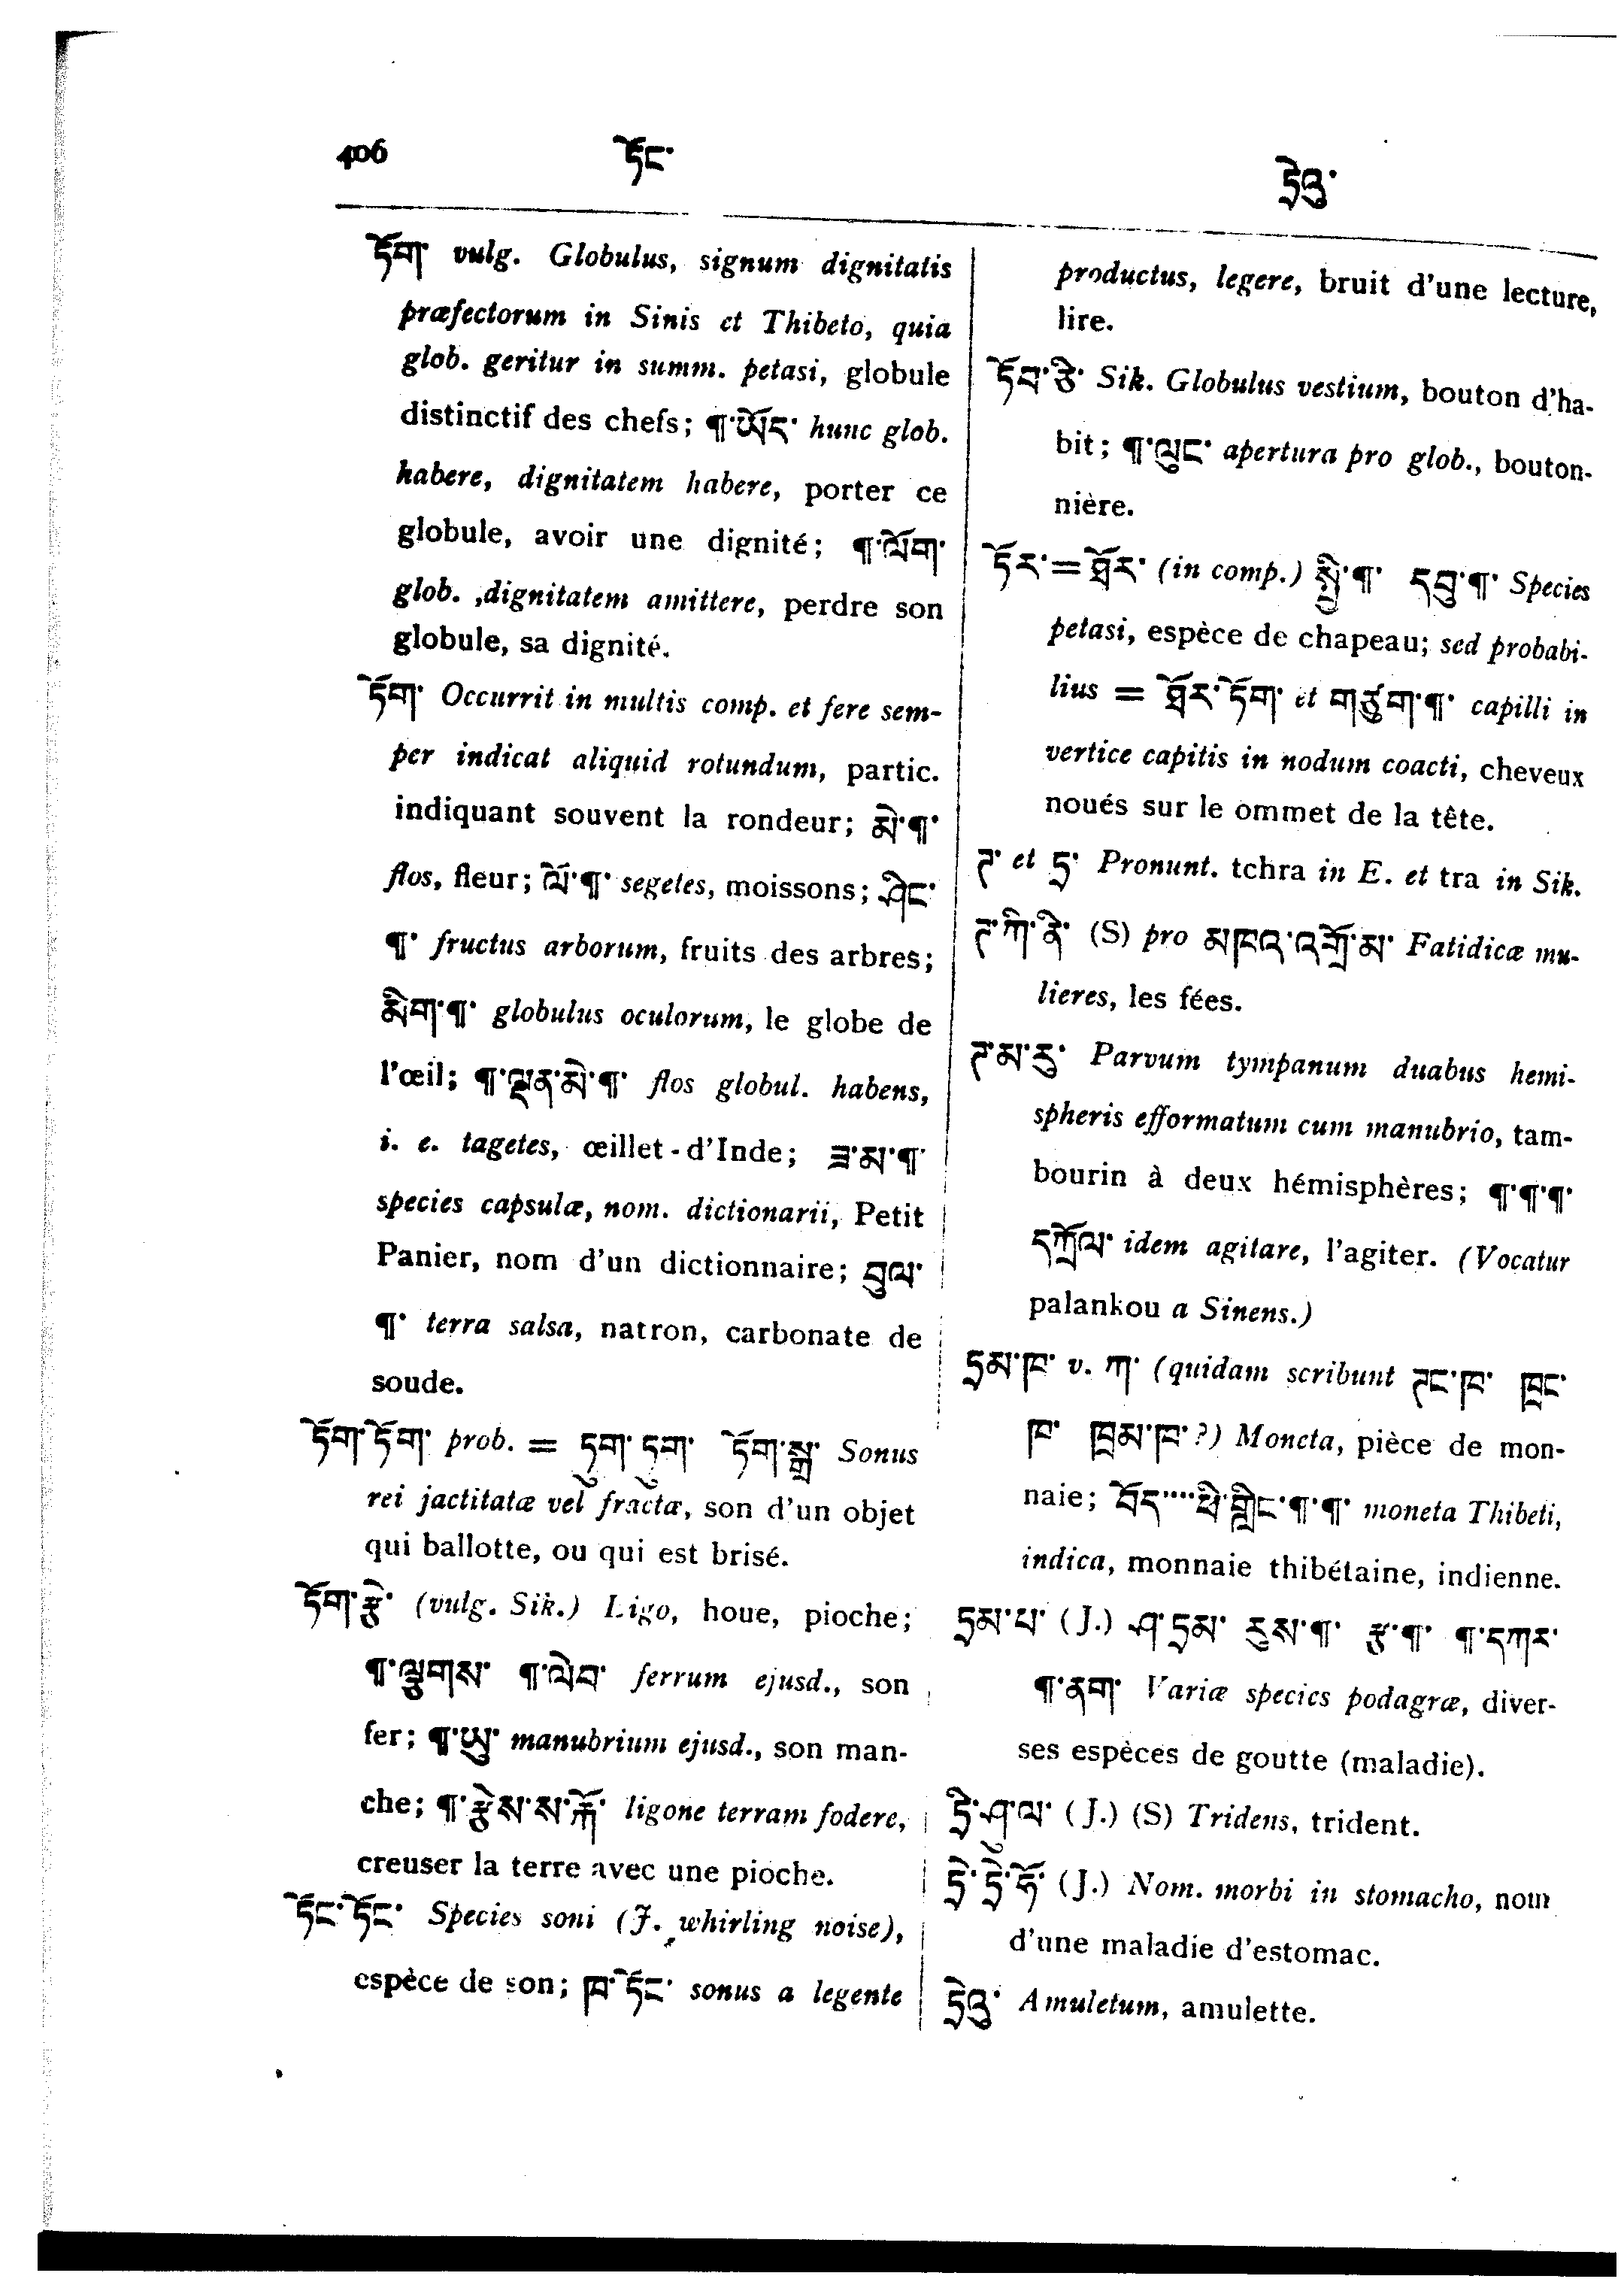 406
ཏོང་
ཏྲེའུ་
ཏོག་ vulg. Globulus, signum dignitatis
præfectorum in Sinis et Thibeto, quia
glob. geritur in summ. petasi, globule
distinctif des chefs; ¶་ཡོད་ hunc glob.
habere, dignitatem habere, porter ce
globule, avoir une dignité; ¶་ལོག་
glob. ,dignitatem amittere, perdre son
globule, sa dignité.
ཏོག་ Occurrit in multis comp. et fere sem-
per indicat aliquid rotundum, partic.
indiquant souvent la rondeur; མེ་¶་
flos, fleur; ལོ་¶་ segetes, moissons; ཤིང་
¶་ fructus arborum, fruits des arbres;
མིག་¶་ globulus oculorum, le globe de
l'œil; ¶་ལྡན་མེ་¶་ flos globul. habens,
i. e. tagetes, œillet-d'Inde; ཟ་མ་¶་
species capsulæ, nom. dictionarii, Petit
Panier, nom d'un dictionnaire; བུལ་
¶་ terra salsa, natron, carbonate de
soude.
ཏོག་ཏོག་ prob. = ཏུག་ཏུག་ ཏོག་སྒྲ་ Sonus
rei jactitatæ vel fractæ, son d'un objet
qui ballotte, ou qui est brisé.
ཏོག་རྩེ་ (vulg. Sik.) Ligo, houe, pioche;
¶་ལྕགས་ ¶་ལེབ་ ferrum ejusd., son
fer; ¶་ཡུ་ manubrium ejusd., son man-
che; ¶་རྩེས་ས་རྐོ་ ligone terram fodere,
creuser la terre avec une pioche.
ཏོང་ཏོང་ Species soni (J. whirling noise),
espèce de son; ཁ་ཏོང་ sonus a legente
productus, legere, bruit d'une lecture,
lire.
ཏོབ་ཅི་ Sik. Globulus vestium, bouton d'ha-
bit; ¶་ལུང་ apertura pro glob., bouton-
nière.
ཏོར་=ཐོར་ (in comp.) སྤྱི་¶་ དབུ་¶་ Species
petasi, espèce de chapeau; sed probabi-
lius = ཐོར་ཏོག་ et གཙུག་¶་ capilli in
vertice capitis in nodum coacti, cheveux
noués sur le ommet de la tête.
ཊ་ et ཏྲ་ Pronunt. tchra in E. et tra in Sik.
ཊ་ཀི་ནི་ (S) pro མཁའ་འགྲོ་མ་ Fatidicæ mu-
lieres, les fées.
ཊ་མ་རུ་ Parvum tympanum duabus hemi-
spheris efformatum cum manubrio, tam-
bourin à deux hémisphères; ¶་¶་¶་
དཀྲོལ་ idem agitare, l'agiter. (Vocatur
palankou a Sinens.)
ཏྲམ་ཁ་ v. ཀ་ (quidam scribunt ཊང་ཁ་ ཁྲང་
ཁ་ ཁྲམ་ཁ་?) Moncta, pièce de mon-
naie; བོད་་་་་ཕི་གླིང་¶་¶་ moneta Thibeti,
indica, monnaie thibétaine, indienne.
ཏྲམ་པ་ (J.) ཤ་ཏྲམ་ རུས་¶་ རྩ་¶་ ¶་དཀར་
¶་ནག་ Variæ species podagræ, diver-
ses espèces de goutte (maladie).
ཏྲི་ཤུ་ལ་ (J.) (S) Tridens, trident.
ཏྲེ་ཏྲེ་ཧོ་ (J.) Nom. morbi in stomacho, nom
d'une maladie d'estomac.
ཏྲེའུ་ Amuletum, amulette.